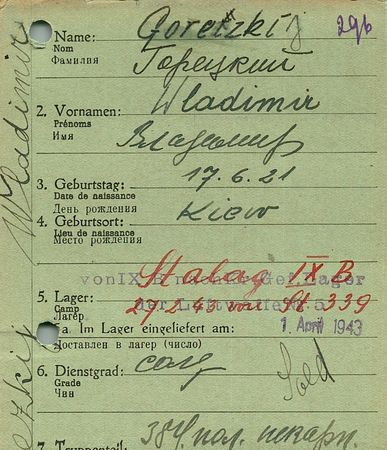 Name: Goretzkij 29b
Nom
Фамилия Горецкий
2. Vornamen: Wladimir
Prénoms
Имя Владимир
3. Geburtstag: 17.6.21
Date de naissance
День рождения
4. Geburtsort: Kiew
Lieu de naissance
Место рождения
Stalag IX B
von IX
5. Lager: 27.2.43 von St 339
Camp
Лагерь
a. Im Lager eingeliefert am: 1. April 1943
Доставлен в лагерь (число)
6. Dienstgrad: солд Sold
Grade
Чин
7. Truppenteil: 384 пол. пекарн.
Wladimir
zkij